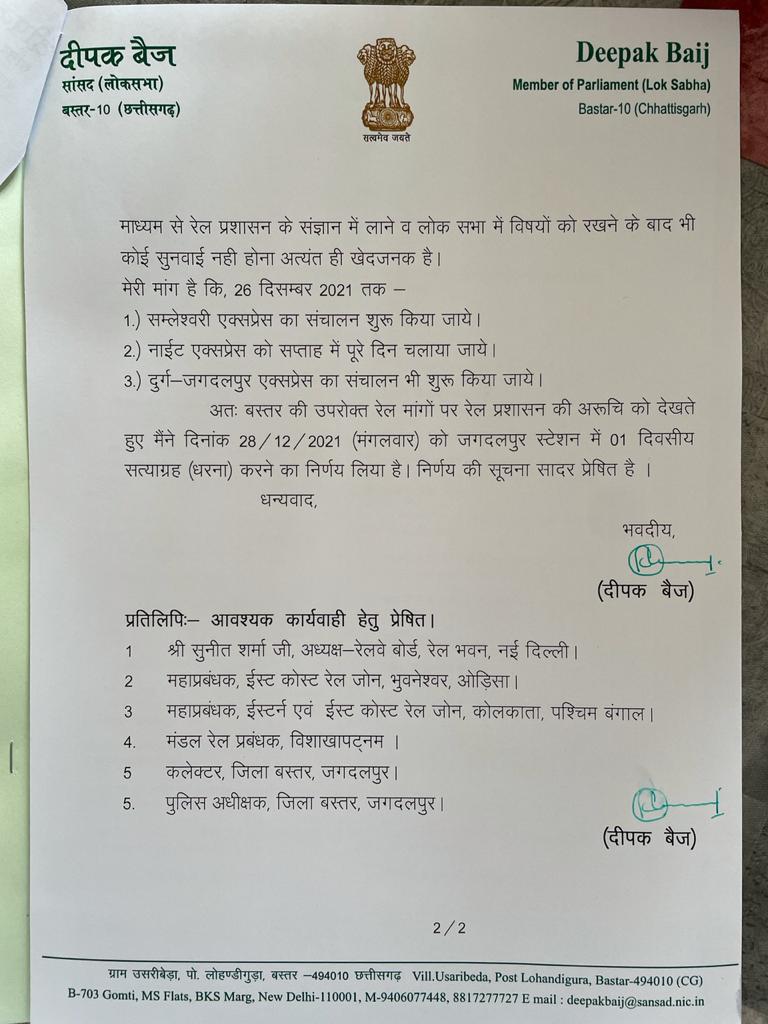 दीपक बैज
सांसद (लोकसभा)
बस्तर-10 (छत्तीसगढ़)
सत्यमेव जयते
Deepak Baij
Member of Parliament (Lok Sabha)
Bastar-10 (Chhattisgarh)
माध्यम से रेल प्रशासन के संज्ञान में लाने व लोक सभा में विषयों को रखने के बाद भी
कोई सुनवाई नही होना अत्यंत ही खेदजनक है।
मेरी मांग है कि, 26 दिसम्बर 2021 तक –
1.) सम्लेश्वरी एक्सप्रेस का संचालन शुरू किया जाये।
2.) नाईट एक्सप्रेस को सप्ताह में पूरे दिन चलाया जाये।
3.) दुर्ग–जगदलपुर एक्सप्रेस का संचालन भी शुरू किया जाये।
अतः बस्तर की उपरोक्त रेल मांगों पर रेल प्रशासन की अरूचि को देखते
हुए मैंने दिनांक 28/12/2021 (मंगलवार) को जगदलपुर स्टेशन में 01 दिवसीय
सत्याग्रह (धरना) करने का निर्णय लिया है। निर्णय की सूचना सादर प्रेषित है ।
धन्यवाद,
भवदीय,
(दीपक बैज)
प्रतिलिपिः– आवश्यक कार्यवाही हेतु प्रेषित।
1 श्री सुनीत शर्मा जी, अध्यक्ष–रेलवे बोर्ड, रेल भवन, नई दिल्ली।
2 महाप्रबंधक, ईस्ट कोस्ट रेल जोन, भुवनेश्वर, ओड़िसा।
3 महाप्रबंधक, ईस्टर्न एवं ईस्ट कोस्ट रेल जोन, कोलकाता, पश्चिम बंगाल।
4. मंडल रेल प्रबंधक, विशाखापट्नम ।
5 कलेक्टर, जिला बस्तर, जगदलपुर।
5. पुलिस अधीक्षक, जिला बस्तर, जगदलपुर।
(दीपक बैज)
2/2
ग्राम उसरीबेड़ा, पो. लोहण्डीगुड़ा, बस्तर –494010 छत्तीसगढ़ Vill.Usaribeda, Post Lohandigura, Bastar-494010 (CG)
B-703 Gomti, MS Flats, BKS Marg, New Delhi-110001, M-9406077448, 8817277727 E mail : deepakbaij@sansad.nic.in